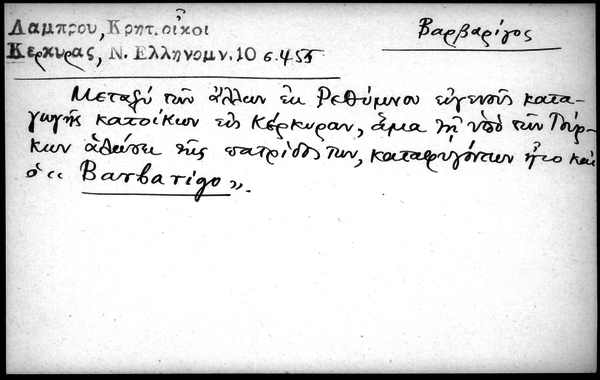 Λαμπρου, Κρητ. οἶκοι
Κερκυρας, Ν. Ελληνομν. 10 σ. 455
Βαρβαρίγος
Μεταξύ τῶν ἄλλων ἐκ Ρεθύμνου εὐγενοῦς κατα-
γωγῆς κατοίκων εἰς Κέρκυραν, ἅμα τῇ ὑπό τῶν Τούρ-
κων ἁλώσει τῆς πατρίδος των, καταφυγόντων ἦτο καί
ὁ «Barbarigo».